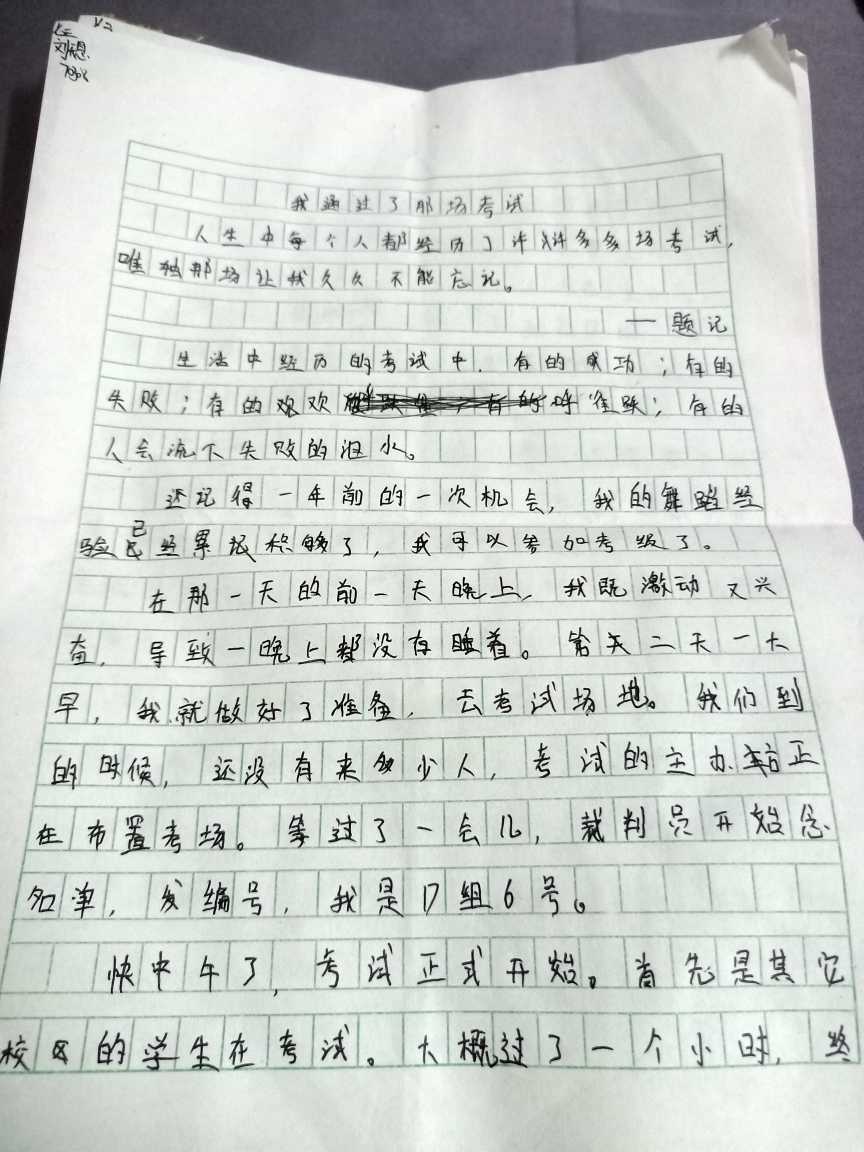 我通过了那场考试
人生中每个人都经历了许许多多场考试，
唯独那场让我久久不能忘记。
——题记
生活中经历的考试中，有的成功；有的
失败；有的难欢呼雀跃；有的
人会流下失败的泪水。
还记得一年前的一次机会，我的舞蹈经
验已经累积够了，我可以参加考级了。
在那一天的前一天晚上，我既激动又兴
奋，导致一晚上都没有睡着。第天二天一大
早，我就做好了准备，去考试场地。我们到
的时候，还没有来多少人，考试的主办方正
在布置考场。等过了一会儿，裁判员开始念
名单，发编号，我是17组6号。
快中午了，考试正式开始。首先是其它
校区的学生在考试。大概过了一个小时，终